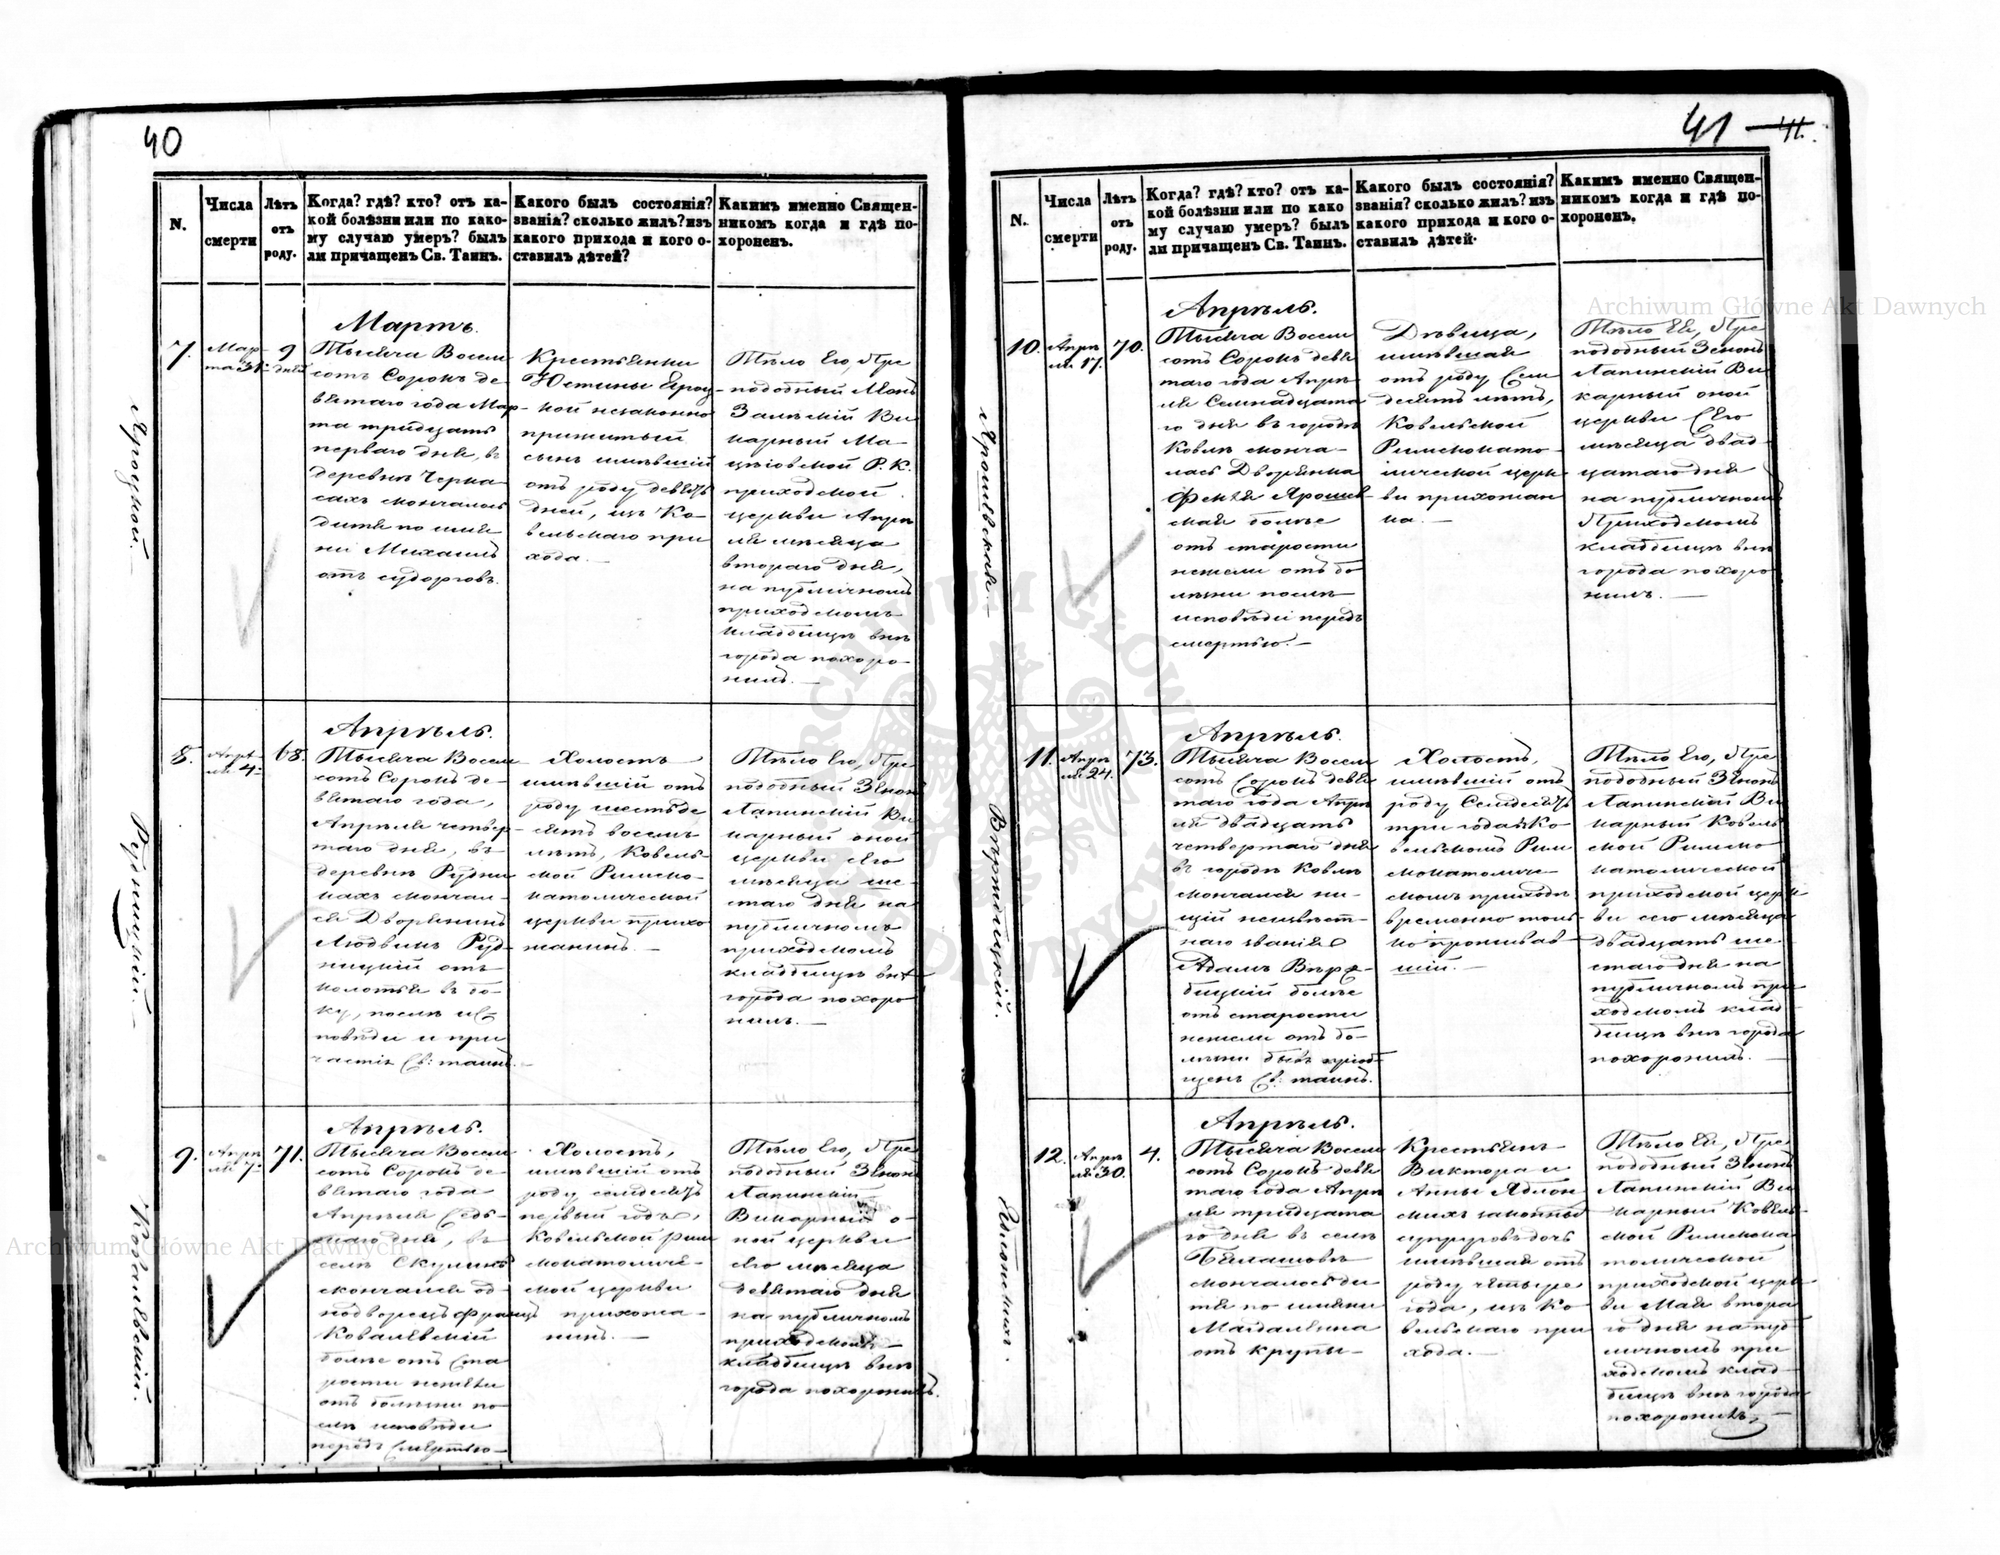 40
N.
Числа
смерти
Лѣтъ
отъ
роду.
Когда? гдѣ? кто? отъ ка-
кой болѣзни или по како-
му случаю умеръ? былъ
ли причащенъ Св. Таинъ.
Какого былъ состоянія?
званія? сколько жилъ? изъ
какого прихода и кого о-
ставилъ дѣтей?
Какимъ именно Священ-
никомъ когда и гдѣ по-
хороненъ.
Яроцкой.—
7.
Мар-
та 31-
9
дней
Мартъ.
Тысяча Восем
сотъ Сорокъ де-
вятаго года Мар-
та тридцать
перваго дня, въ
деревнѣ Черка
сахъ скончалось
дитя по име
ни Михаилъ
отъ судорговъ.
Крестьянки
Юстины Яроц-
кой незаконно
прижитый
сынъ имѣвшій
отъ роду девять
дней, изъ Ко-
вельскаго при
хода.—
Тѣло Его, Пре
подобный Леонъ
Залѣскій Ви
карный Ма-
цѣіовской Р. К.
приходской
церкви Апрѣ
ля мѣсяца
втораго дня,
на публичномъ
приходскомъ
кладбищѣ внѣ
города похоро-
нилъ.—
Рудницкій.—
8.
Апрѣ-
ля 4-
68.
Апрѣль.
Тысяча Восем
сотъ Сорокъ де-
вятаго года,
Апрѣля четвер-
таго дня, въ
деревнѣ Рудни
кахъ скончал-
ся Дворянинъ
Людвикъ Руд-
ницкій отъ
колотья въ бо-
ку, послѣ ис-
повѣди и при
частія Св: таинъ.—
Холостъ
имѣвшій отъ
роду шестьде
сятъ восемъ
лѣтъ, Ковель-
ской Римско-
католической
церкви прихо
жанинъ.—
Тѣло Его, Пре
подобный Зенонъ
Лапинскій Ви
карный оной
церкви сего
мѣсяца ше-
стаго дня на
публичномъ
приходскомъ
кладбищѣ внѣ
города похоро
нилъ.—
Ковалевскій.
9.
Апрѣ
ля 7-
71.
Апрѣль.
Тысяча Восем
сотъ Сорокъ де-
вятаго года
Апрѣля Седь-
маго дня, въ
селѣ Скулинѣ
скончался од-
нодворецъ Францъ
Ковалевскій
болѣе отъ Ста
рости нежели
отъ болѣзни по-
слѣ исповѣди
передъ Смертью—
Холостъ,
имѣвшій отъ
роду семдесятъ
первый годъ,
Ковельской рим
скокатоличе-
ской церкви
прихожа-
нинъ.—
Тѣло Его, Пре
подобный Зенонъ
Лапинскій
Викарный о-
ной церкви
сего мѣсяца
девятаго дня
на публичномъ
приходскомъ
кладбищѣ внѣ
города похоронилъ.
41 41.
N.
Числа
смерти
Лѣтъ
отъ
роду.
Когда? гдѣ? кто? отъ ка-
кой болѣзни или по како
му случаю умеръ? былъ
ли причащенъ Св. Таинъ.
Какого былъ состоянія?
званія? сколько жилъ? изъ
какого прихода и кого о-
ставилъ дѣтей.
Какимъ именно Священ-
никомъ когда и гдѣ по-
хороненъ.
Ярошевская.—
10.
Апрѣ
ля 17.
70.
Апрѣль.
Тысяча Восем
сотъ Сорокъ девя
таго года Апрѣ
ля Семнадцата
го дня въ городѣ
Ковлѣ сконча-
лась Дворянка
Фекля Ярошев-
ская болѣе
отъ старости
нежели отъ бо-
лѣзни послѣ
исповѣди передъ
смертью.—
Дѣвица,
имѣвшая
отъ роду Сем
десятъ лѣтъ,
Ковельской
Римскокато-
лической церк
ви прихожан
ка.—
Тѣло Ея, Пре
подобный Зенонъ
Лапинскій Ви
карный оной
церкви Сего
мѣсяца двад-
цатаго дня
на публичномъ
Приходскомъ
кладбищѣ внѣ
города похоро
нилъ.—
Вербицкій.
11.
Апрѣ
ля 24.
73.
Апрѣль.
Тысяча Восем
сотъ Сорокъ девя
таго года Апрѣ
ля двадцать
четвертаго дня
въ городѣ Ковлѣ
скончался ни-
щій неизвѣст-
наго званія
Адамъ Вер-
бицкій болѣе
отъ старости
нежели отъ бо-
лѣзни бывъ приоб-
щенъ Св. таинъ.
Холостъ,
имѣвшій отъ
роду Семдесятъ
три года въ Ко-
вельскомъ Рим
скокатоличе-
скомъ приходѣ
временно толь
ко проживав-
шій.—
Тѣло Его, Пре
подобный Зенонъ
Лапинскій Ви
карный Ковель
ской Римско
католической
приходской церк-
ви сего мѣсяца
двадцать ше-
стаго дня на
публичномъ при
ходскомъ клад-
бищѣ внѣ города
похоронилъ.—
Яблонскихъ.
12.
Апрѣ
ля 30.
4.
Апрѣль.
Тысяча Восем
сотъ Сорокъ девя
таго года Апрѣ
ля тридцата
го дня въ селѣ
Бѣлашовѣ
скончалось ди
тя по имяни
Магдалина
отъ крупы—
Крестьянъ
Виктора и
Анны Яблон
скихъ законныхъ
супруговъ дочь
имѣвшая отъ
роду четыре
года, изъ Ко-
вельскаго при
хода.—
Тѣло Ея, Пре
подобный Зенонъ
Лапинскій Ви
карный Ковель-
ской Римскока
толической
приходской церк
ви Мая втора
го дня на пуб
личномъ при
ходскомъ клад-
бищѣ внѣ города
похоронилъ.
Archiwum Główne Akt Dawnych
Archiwum Główne Akt Dawnych
ARCHIWUM GŁÓWNE AKT DAWNYCH